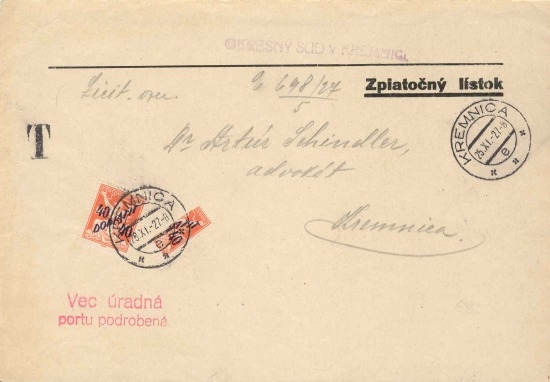 OKRESNÝ SÚD V KREMNICI.
Zpiatočný lístok
Licit. ozn. E 698/27
5
T
Dr Artúr Schindler,
advokát
Kremnica.
KREMNICA
25.XI.-27-6
e
40 DOPLATIT 40
KREMNICA
25.XI.-27-6
e
Vec úradná
portu podrobená